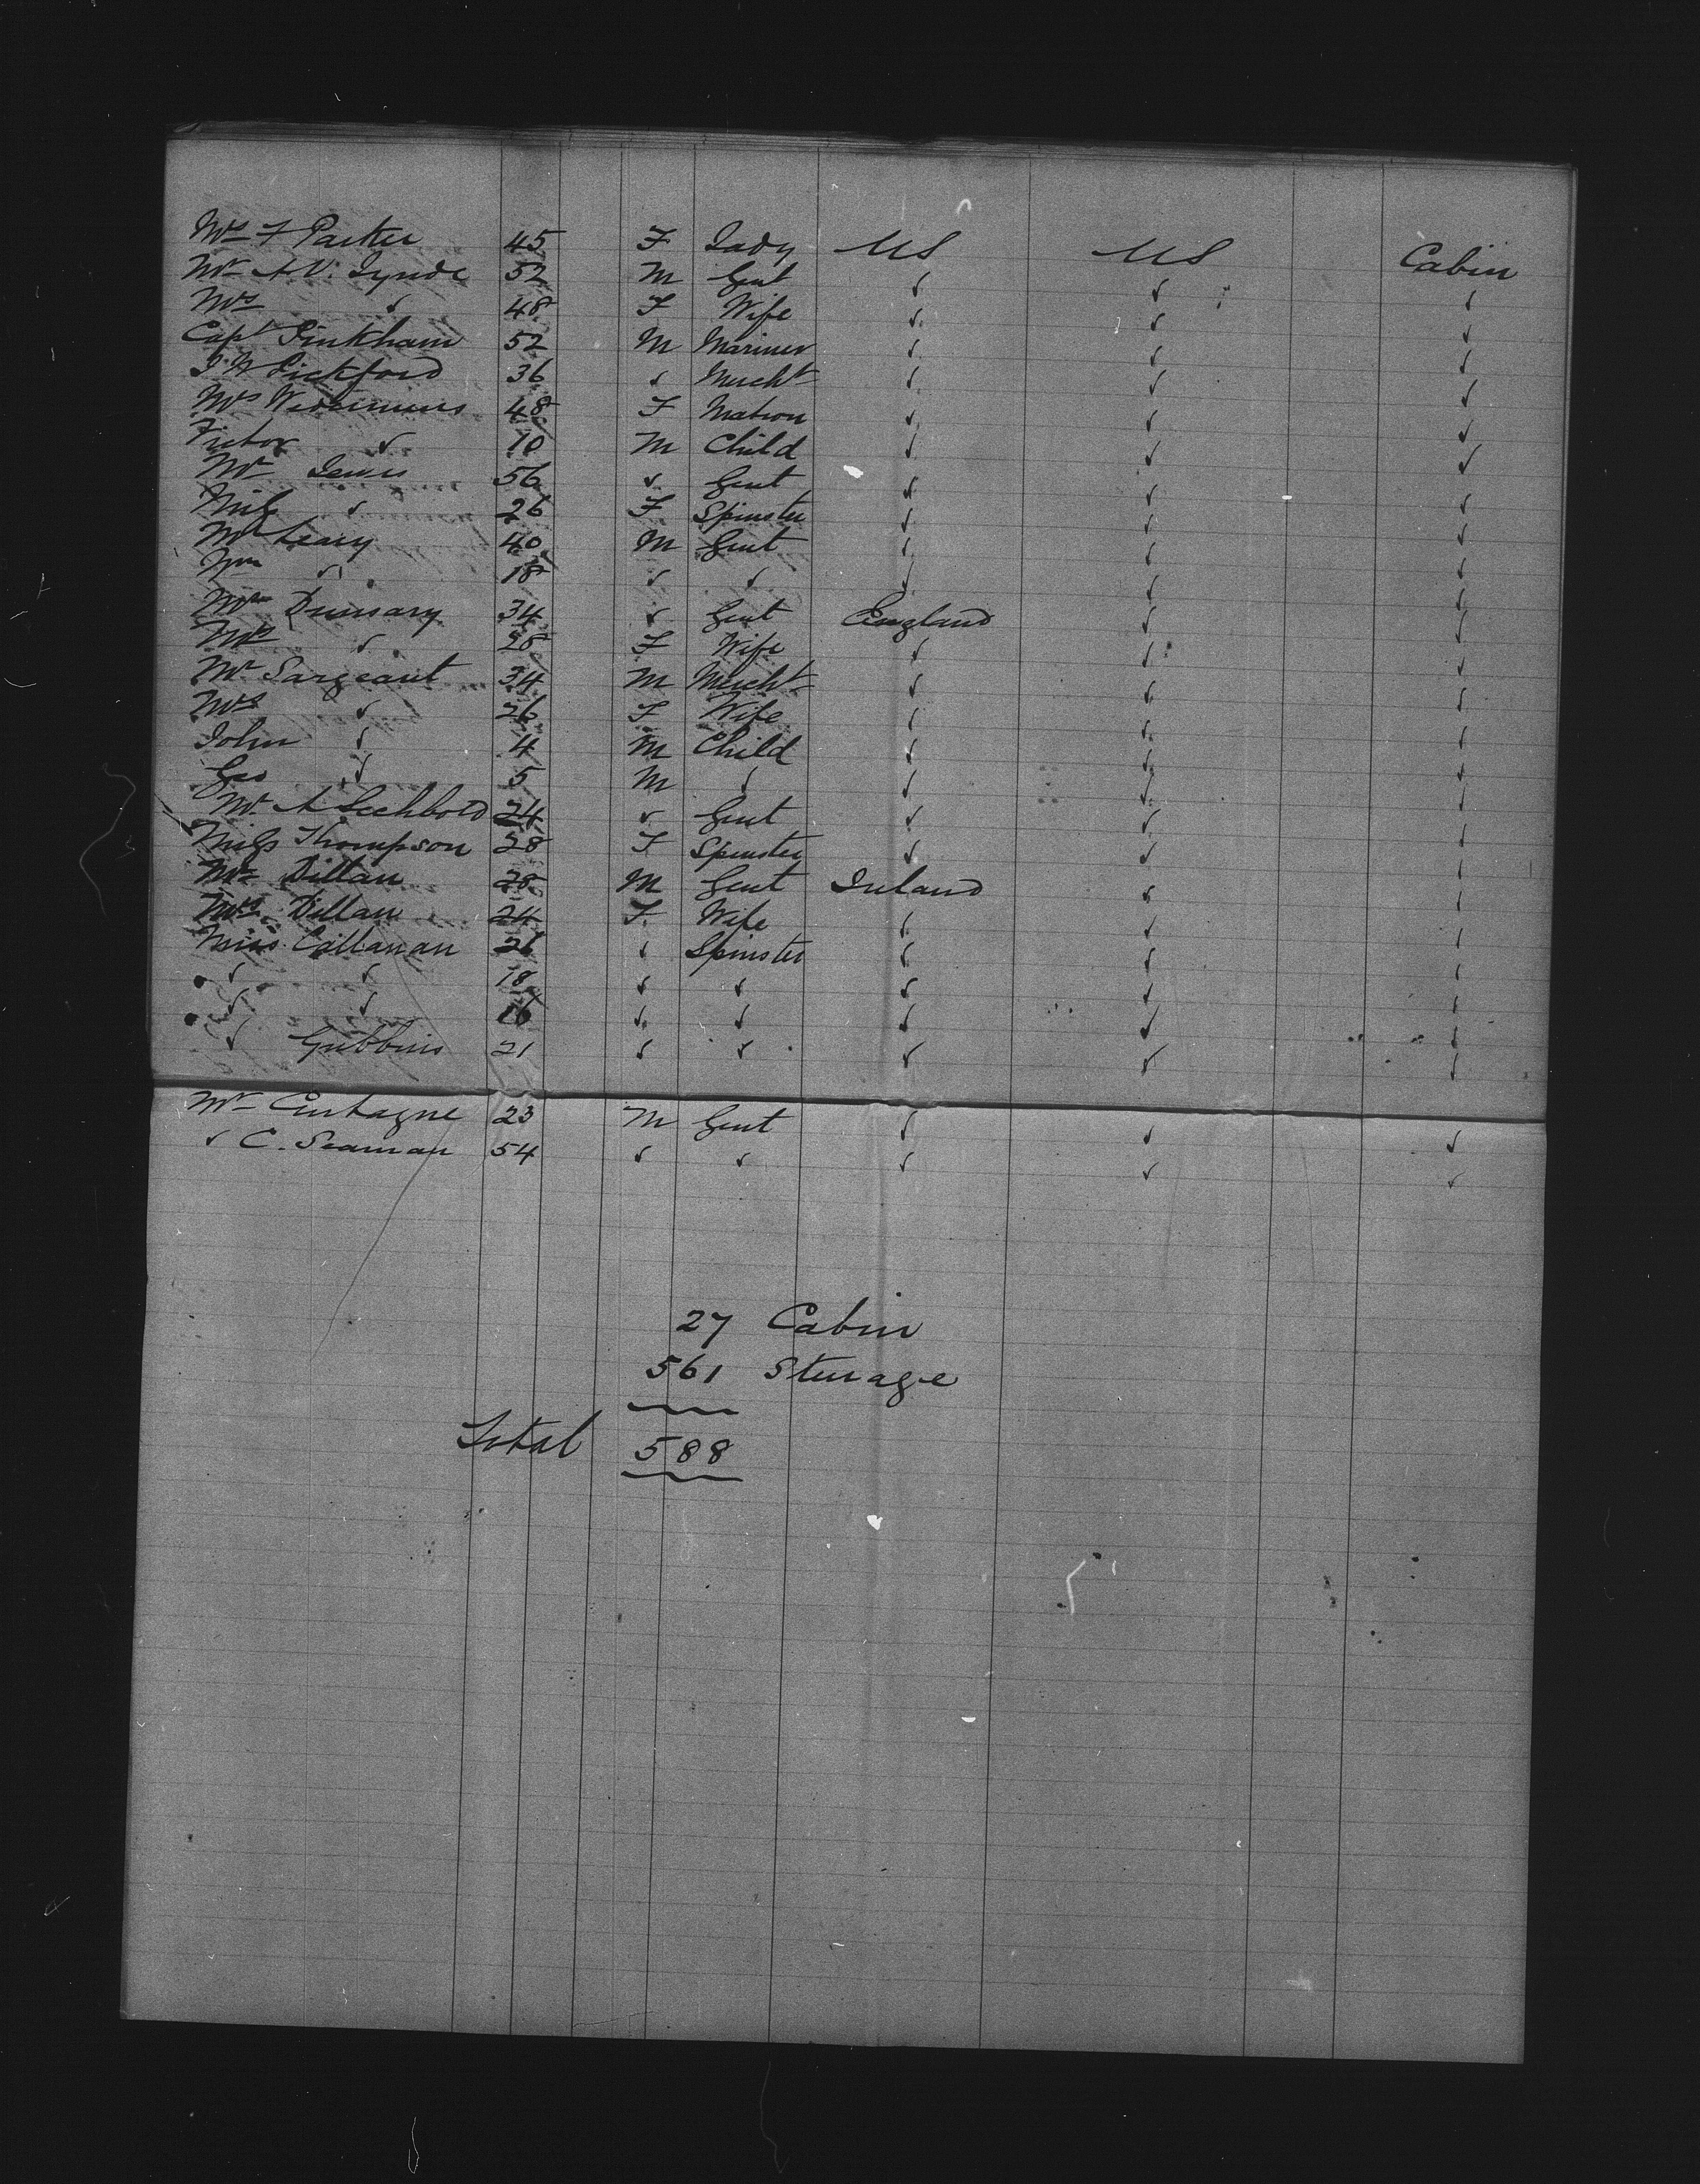 Mrs F Parker 45 F Lady US US Cabin
Mr A V. Lynde 52 M Gent ✓ ✓ ✓
Mrs ✓ 48 F Wife ✓ ✓ ✓
Capt Pinkham 52 M Mariner ✓ ✓ ✓
J W Pickford 36 ✓ Mercht ✓ ✓ ✓
Mrs 48 F Matron ✓ ✓ ✓
Victor ✓ 10 M Child ✓ ✓ ✓
Mr Lewis 56 ✓ Gent ✓ ✓ ✓
Miss ✓ 26 F Spinster ✓ ✓ ✓
Mr Leary 40 M Gent ✓ ✓ ✓
Wm ✓ 18 ✓ ✓ ✓ ✓ ✓
Mr 34 ✓ Gent England ✓ ✓
Mrs ✓ 28 F Wife ✓ ✓ ✓
Mr Sargeant 34 M Mercht ✓ ✓ ✓
Mrs ✓ 26 F Wife ✓ ✓ ✓
John ✓ 4 M Child ✓ ✓ ✓
Geo ✓ 5 M ✓ ✓ ✓ ✓
Mr A 24 ✓ Gent ✓ ✓ ✓
Miss Thompson 28 F Spinster ✓ ✓ ✓
Mr Dillan 28 M Gent Ireland ✓ ✓
Mrs Dillan 24 F Wife ✓ ✓ ✓
Miss Callanan 26 ✓ Spinster ✓ ✓ ✓
✓ ✓ 18 ✓ ✓ ✓ ✓ ✓
✓ ✓ 16 ✓ ✓ ✓ ✓ ✓
✓ Gubbins 21 ✓ ✓ ✓ ✓ ✓
Mr 23 M Gent ✓ ✓ ✓
✓ C. Seaman 54 ✓ ✓ ✓ ✓ ✓
27 Cabin
561 Steerage
Total 588